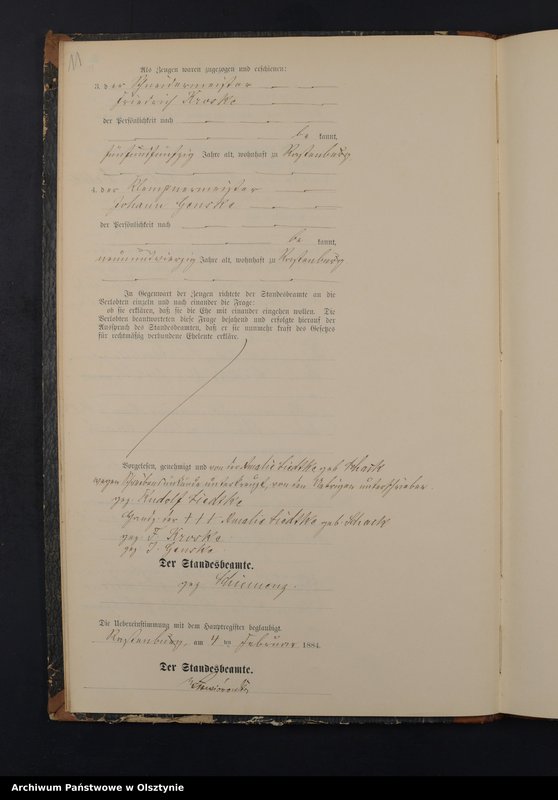 11
Als Zeugen waren zugezogen und erschienen:
3. der Schneidermeister
Friedrich Kroske
der Persönlichkeit nach
be kannt,
fünfundfünfzig Jahre alt, wohnhaft zu Rastenburg
4. der Klempnermeister
Johann Genske
der Persönlichkeit nach
be kannt,
neunundvierzig Jahre alt, wohnhaft zu Rastenburg
In Gegenwart der Zeugen richtete der Standesbeamte an die
Verlobten einzeln und nach einander die Frage:
ob sie erklären, daß sie die Ehe mit einander eingehen wollen. Die
Verlobten beantworteten diese Frage bejahend und erfolgte hierauf der
Ausspruch des Standesbeamten, daß er sie nunmehr kraft des Gesetzes
für rechtmäßig verbundene Eheleute erkläre.
Vorgelesen, genehmigt und von der Amalie Liedtke geb. Schack
wegen Schreibensunkunde unterkreuzt, von den Uebrigen unterschrieben.
gez. Rudolf Liedtke
Handz. der ††† Amalie Liedtke geb. Schack
gez. F. Kroske
gez. J. Genske.
Der Standesbeamte.
gez. Thiemeng.
Die Uebereinstimmung mit dem Hauptregister beglaubigt.
Rastenburg, am 4 ten Februar 1884.
Der Standesbeamte.
Archiwum Państwowe w Olsztynie